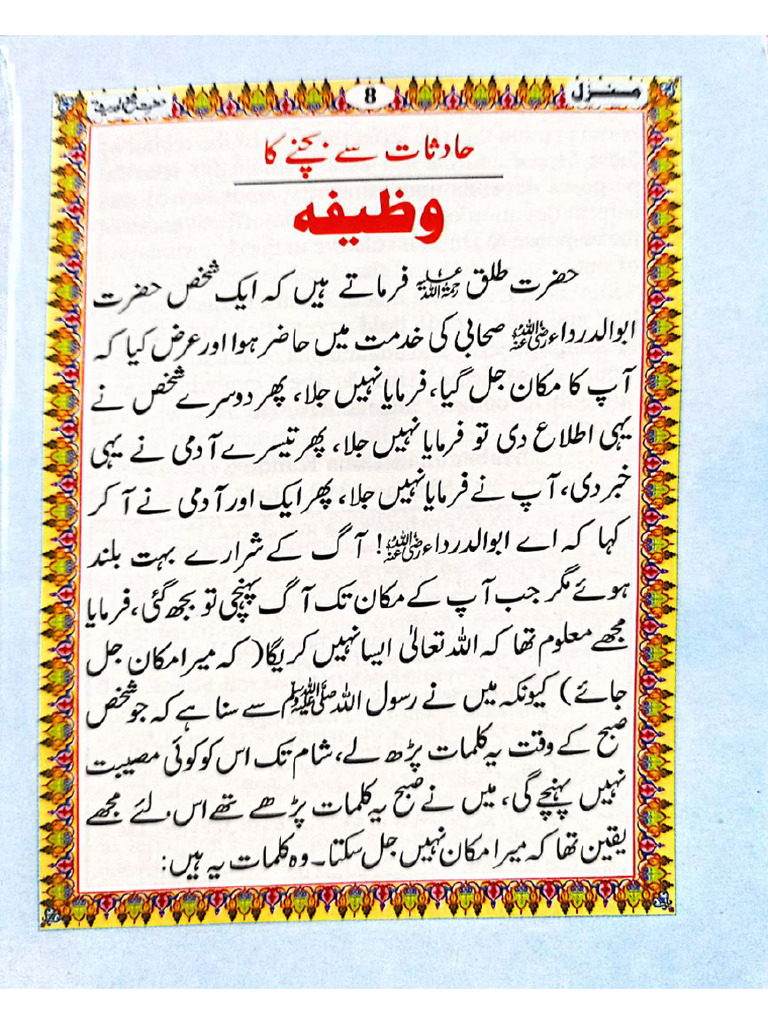 منزل
8
حادثات سے بچنے کا
وظیفہ
حضرت طلق رحمۃ اللہ علیہ فرماتے ہیں کہ ایک شخص حضرت
ابوالدرداء رضی اللہ عنہ صحابی کی خدمت میں حاضر ہوا اور عرض کیا کہ
آپ کا مکان جل گیا، فرمایا نہیں جلا، پھر دوسرے شخص نے
یہی اطلاع دی تو فرمایا نہیں جلا، پھر تیسرے آدمی نے یہی
خبر دی، آپ نے فرمایا نہیں جلا، پھر ایک اور آدمی نے آ کر
کہا کہ اے ابوالدرداء رضی اللہ عنہ! آگ کے شرارے بہت بلند
ہوئے مگر جب آپ کے مکان تک آگ پہنچی تو بجھ گئی، فرمایا
مجھے معلوم تھا کہ اللہ تعالیٰ ایسا نہیں کریگا (کہ میرا مکان جل
جائے) کیونکہ میں نے رسول اللہ صلی اللہ علیہ وسلم سے سنا ہے کہ جو شخص
صبح کے وقت یہ کلمات پڑھ لے، شام تک اس کو کوئی مصیبت
نہیں پہنچے گی، میں نے صبح یہ کلمات پڑھے تھے اس لئے مجھے
یقین تھا کہ میرا مکان نہیں جل سکتا۔ وہ کلمات یہ ہیں: